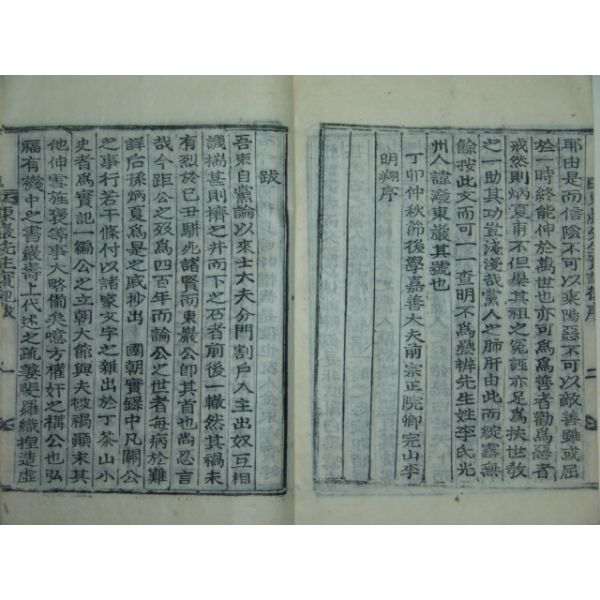 耶由是而信陰不可以乘陽惡不可以敵善雖或屈
於一時終能伸於萬世也亦可爲爲善者勸爲惡者
戒然則炳夏甫不但畢其祖之冤誣亦足爲挾世敎
之一助其功豈淺淺哉黨人之肺肝由此而綻露無
餘按此文而可一一查明不爲疊辨先生姓李氏光
州人諱潑東巖其號也
丁卯仲秋節後學嘉善大夫前宗正院卿完山李
明翔序
跋
吾東自黨論以來士大夫分門割戶入主出奴互相
譏揣甚則擠之井而下之石者前後一轍然其禍未
有烈於己丑騈死諸賢而東巖公卽其首也尚忍言
哉今距公之歿爲四百年而論公之世者每病於難
詳后孫炳夏爲是之慼抄出 國朝實錄中凡關公
之事行若干條付以諸家文字之雜出於丁茶山小
史者爲實記一編公之立朝大節與夫被禍顚末其
他伸雪旌褒等事大略備矣噫方權奸之構公也弘
福有機中之書巖壽上代述之疏萋斐羅織揑造虛
東巖先生實記跋